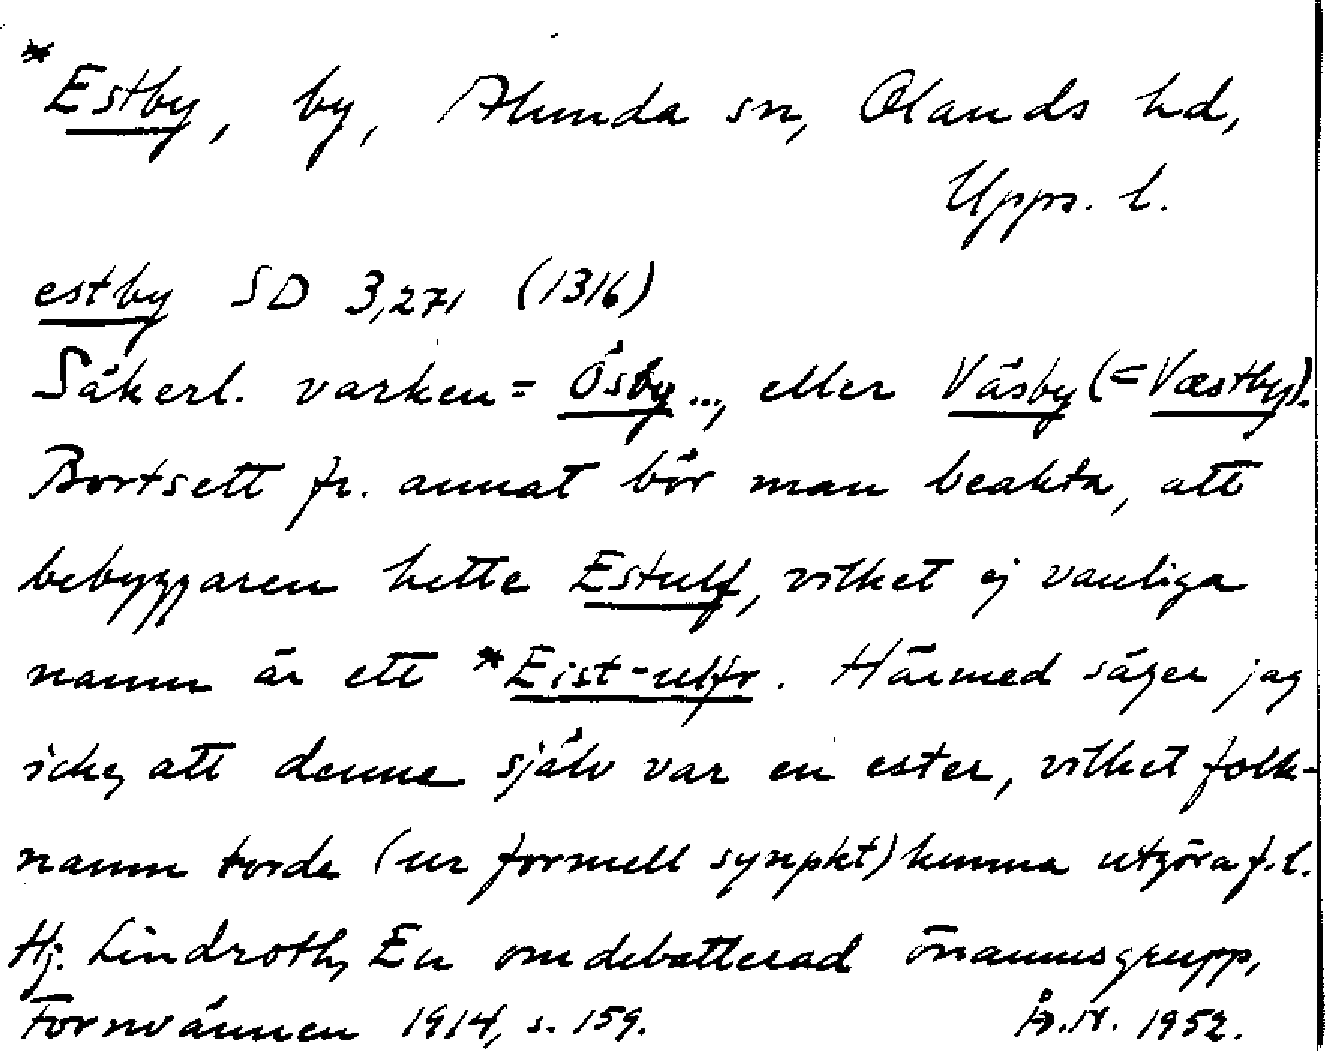 *Estby, by, Alunda sn, Olands hd,
Upps. l.
estby SD 3,271 (1316)
Säkerl. varken = Ösby..., eller Väsby (= Væstby).
Bortsett fr. annat bör man beakta, att
bebyggaren hette Estulf, vilket ej vanliga
namn är ett *Eist-ulfr. Härmed säger jag
icke, att denne själv var en ester, vilket folk-
namn torde (ur formell synpkt) kunna utgöra f.l.
Hj. Lindroth, En omdebatterad önamnsgrupp,
Fornvännen 1914, s. 159.
1952.